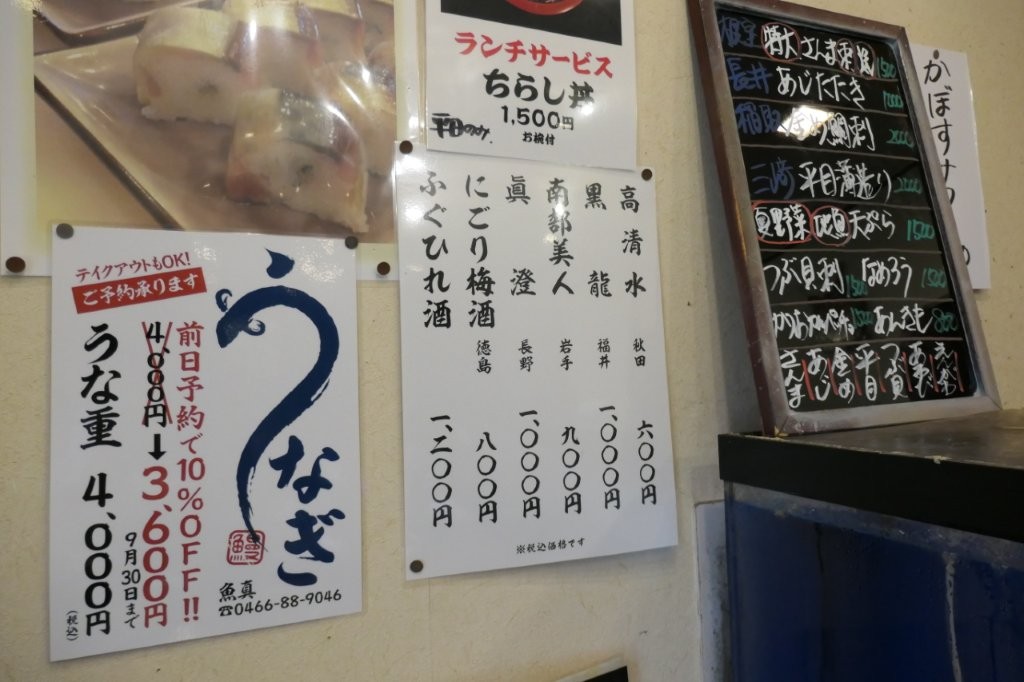 ランチサービス
ちらし丼
1,500円
お椀付
平日のみ
テイクアウトもOK!
ご予約承ります
うなぎ
前日予約で10%OFF!!
4,000円→3,600円
9月30日まで
うな重 4,000円
(税込)
魚真
☎0466-88-9046
高清水 秋田 六〇〇円
黒龍 福井 一、〇〇〇円
南部美人 岩手 九〇〇円
眞澄 長野 一、〇〇〇円
にごり梅酒 徳島 八〇〇円
ふぐひれ酒 一、二〇〇円
※税込価格です
特大 さんま刺 1500
長井 あじたたき 1000
鯛刺
三崎 平目薄造り 2000
魚野菜 地魚 天ぷら 1500
つぶ貝刺 1500 なめろう 1500
あんきも 800
さんま
あじ
金め
平目
つぶ貝
かぼす